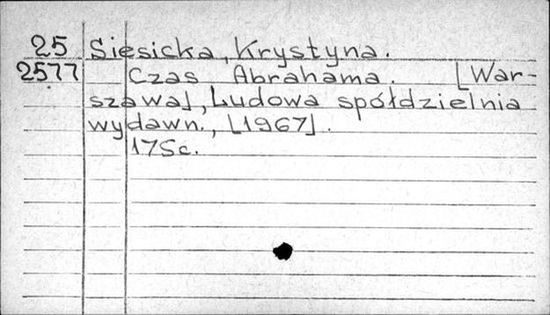 25 Siesicka, Krystyna.
2577 Czas Abrahama. [War-
szawa], Ludowa spółdzielnia
wydawn., [1967].
175c.